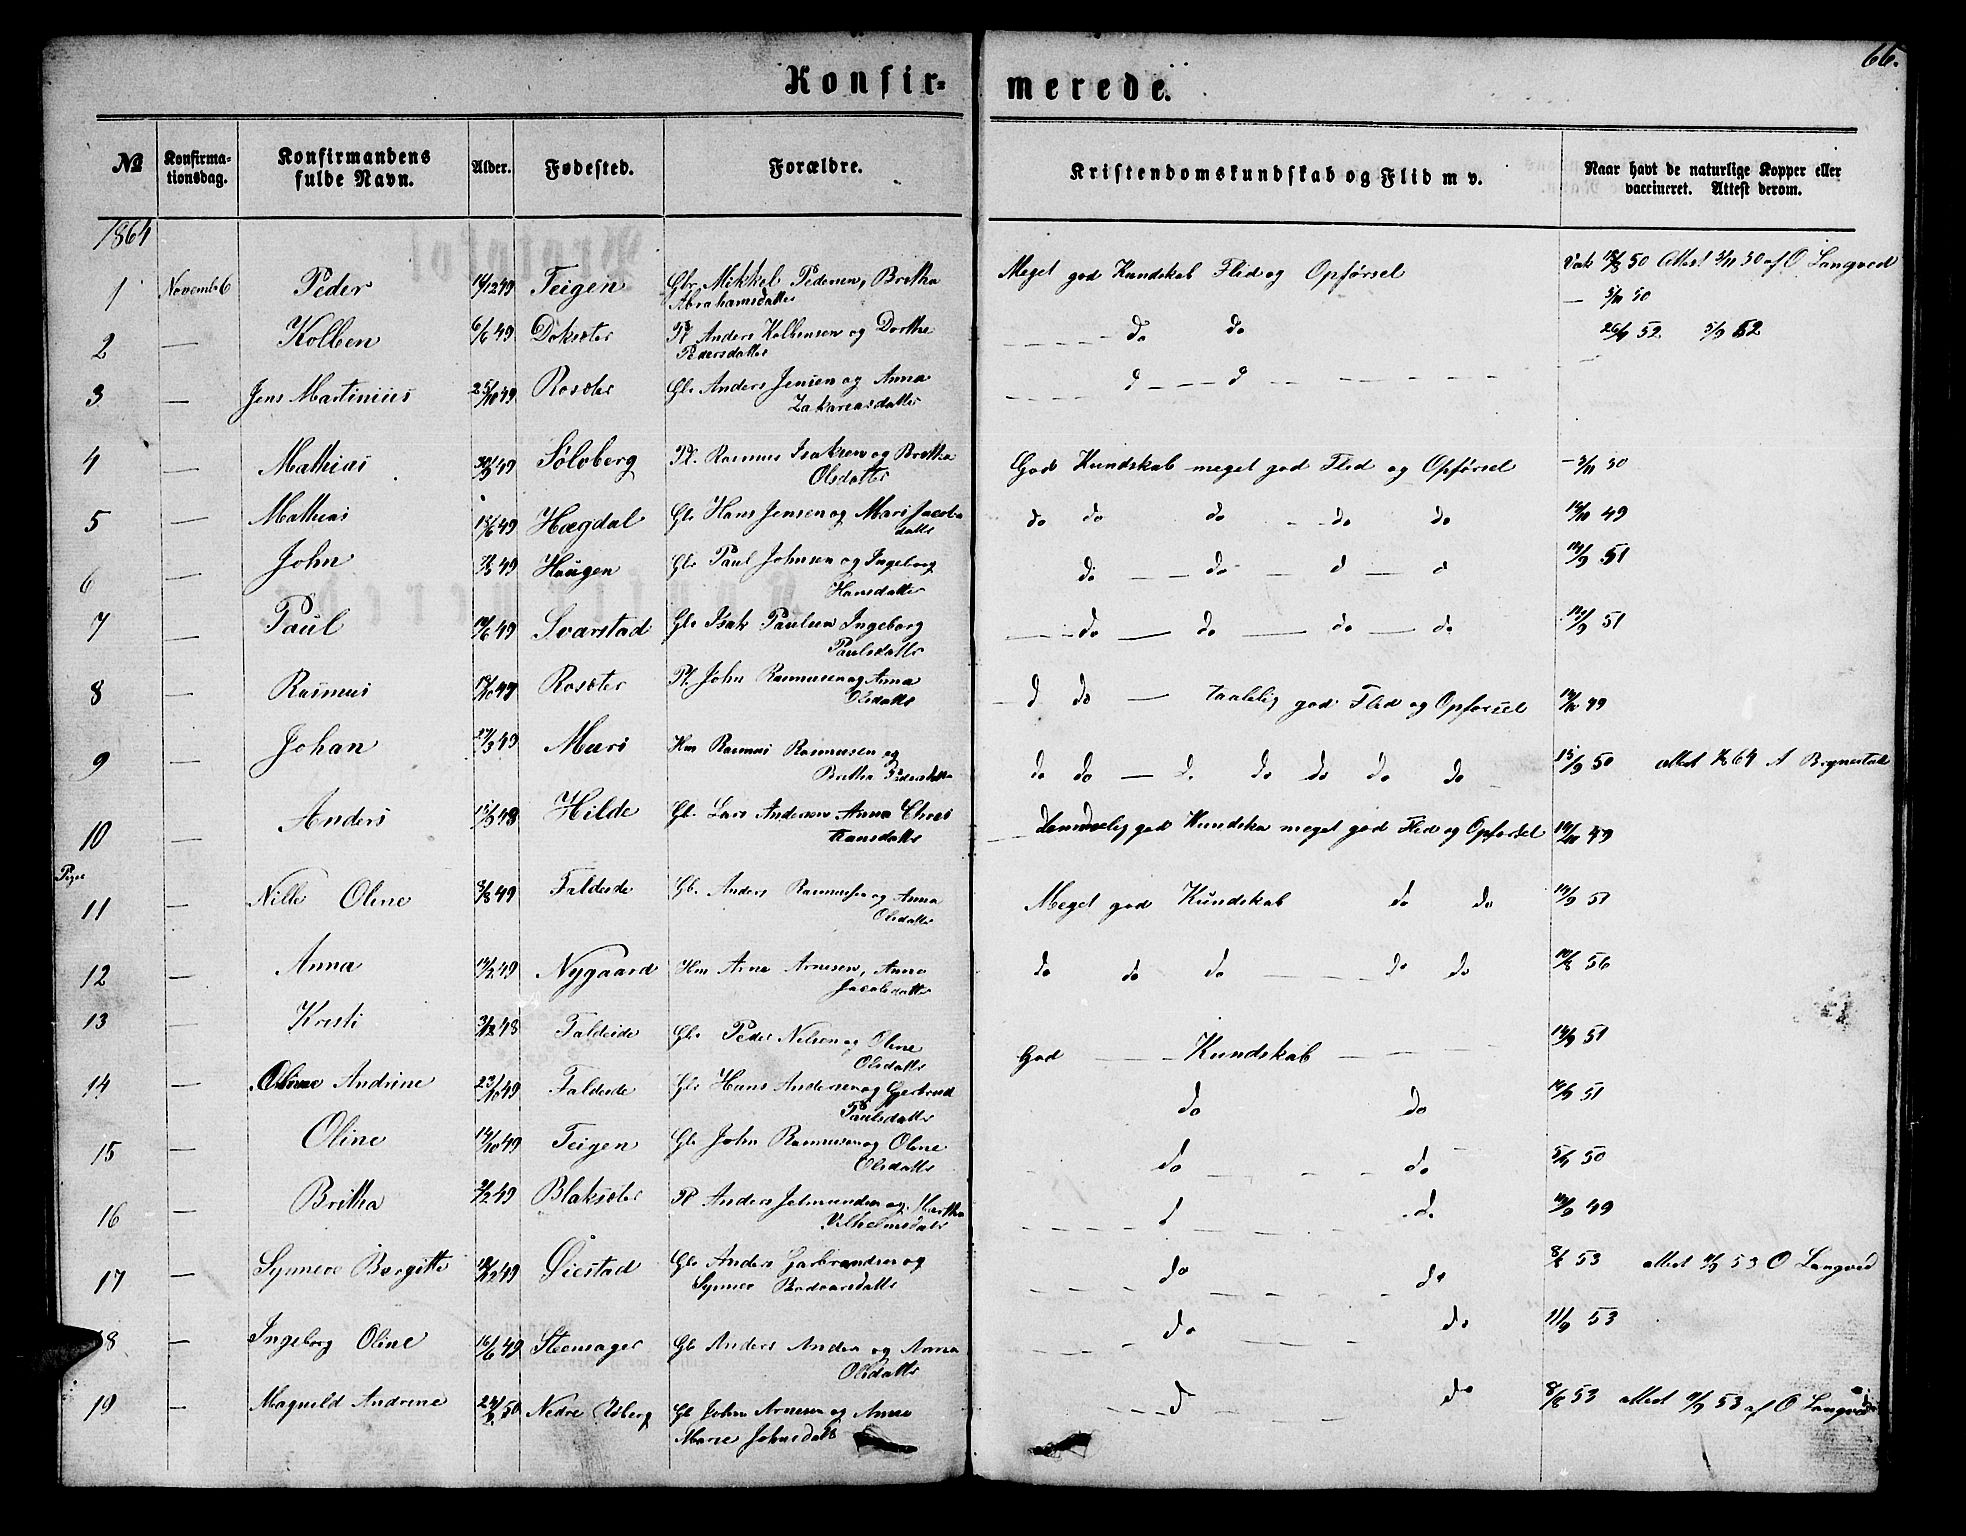 66.
Konfir= merede.
№ Konfirma-tionsdag. Konfirmandens fulde Navn. Alder. Fødested. Forældre. Kristendomskundskab og Flid m v. Naar havt de naturlige Kopper eller vaccineret. Attest derom.
1864
1 Novemb 6 Peder 14/12 49 Teigen Gbr Mikkel Pedersen, Brethe Abrahamsdatter Meget god Kundskab Flid og Opførsel Vak 50 Attest 3/11 50 af O Langved
— 5/11 50
2 — Kolben 6/6 49 Doksæter Pl Anders Kolbensen og Dorthe Pedersdatter do do 26/9 52 5/9 52
3 — Jens Martinius 25/10 49 Rosæter Gbr Anders Jensen og Anna Zakariasdatter d d
4 — Mathias 49 Sølvberg Pl. Rasmus Isaksen og Brethe Olsdatter God Kundskab meget god Flid og Opførsel — 3/11 50
5 — Mathias 49 Hægdal Gbr Hans Jensen og Mari Jacobsdatter do do do do do 49
6 — John 49 Haugen Gbr Paul Johnsen og Ingeborg Hansdatter do do d d 14/9 51
7 — Paul 49 Svarstad Gbr Isak Paulsen Ingeborg Paulsdatter do do do do 51
8 — Rasmus 49 Rosæter Pl. John Rasmusen og Anna Olsdatter d do — taalelig god Flid og Opførsel 49
9 — Johan 27/3 49 Muri Hm Rasmus Rasmusen og Brethe Pedersdatter do do — d. do do do do 15/9 50 attest 64 A Rygnestad
10 Anders 48 Hilde Gb. Lars Andersen Anna Hansdatter god Kundska meget god Flid og Opførsel 49
Piger
11 — Nille Oline 3/8 49 Faldeide Gb. Anders Rasmussen og Anna Olsdatter Meget god Kundskab do do 14/9 51
12 — Anna 14/2 49 Nygaard Hm Arne Arnesen, Anne Jacobsdatter do do do do do 56
13 — Kristi 48 Faldeide Gbr Peder Nilsen og Oline Olsdatter God Kundskab 14/9 51
14 — Oline Andrine 23/10 49 Faldeide Gbr Hans Andersen og Gjertrud Paulsdatter do do 14/9 51
15 — Oline 14/10 49 Teigen Gbr John Rasmusen og Oline Olsdatter do do 50
16 — Brithe 49 Blaksæter Pl Anders og Marthe Vilhelmsdatter d do 49
17 — Synneve Bergitte 49 Øiestad Gbr Anders Garbrandsen og Synnev Bodvarsdatter do do 8/6 53 attest 9/9 53 O Langved
18 — Ingeborg Oline 16/6 49 Steensager Gb Anders Anders og Anna Olsdatter do do 11/9 53
19 — Magnild Andrine 24/2 50 Nedre Aaberg Gb John Arnesen og Anne Marie Johnsdatt d do 8/6 53 attest 9/9 53 af O Langved